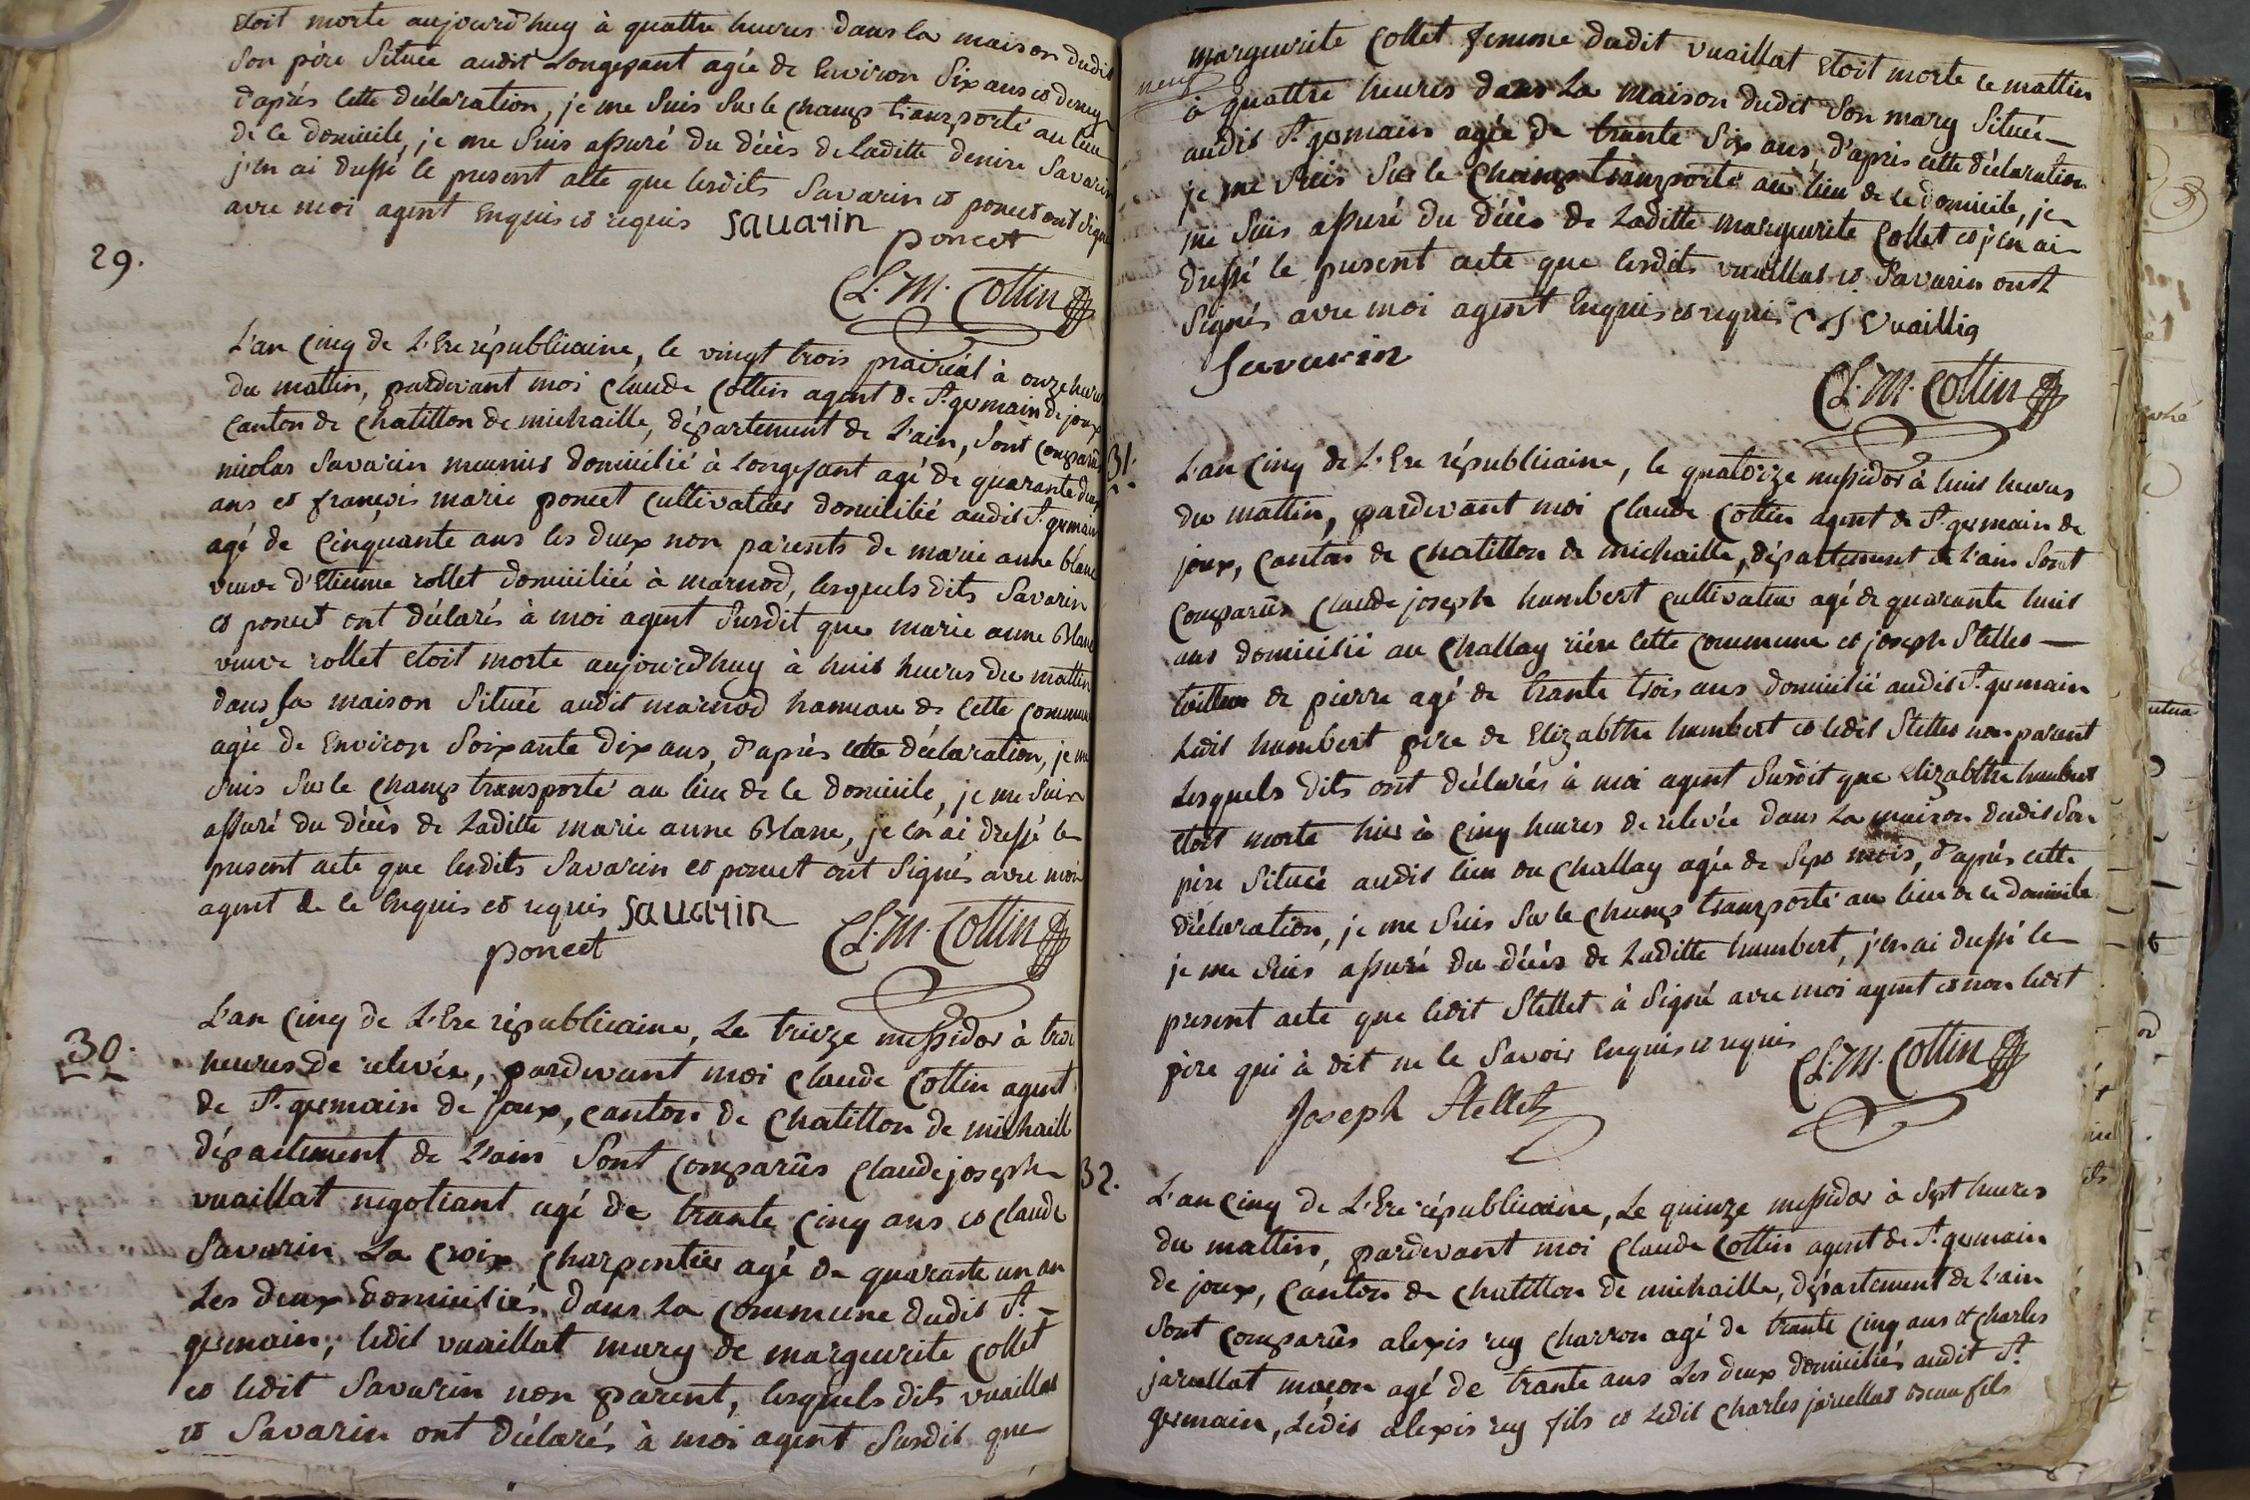 etoit morte aujourd'huy à quattre heures dans la maison dudit
son père située audit Longefant agée de Environ six ans et demy
d'après cette déclaration, je me suis sur le champ transporté au lieu
de ce domicile, je me suis assuré du décès de laditte denise Savarin
j'en ai dressé le present acte que lesdits Savarin et poncet ont signé
avec moi agent Enquis et requis Savarin
poncet
Cl. M. Cottin
29.
L'an Cinq de L'Ere républicaine, le vingt trois prairéal à onze heures
du mattin, pardevant moi Claude Cottin agent de St. germain de joux
Canton de Chatillon de michaille, département de L'ain, sont comparus
nicolas Savarin meunier domicilié à Longefant agé de quarante deux
ans et françois marie poncet Cultivateur domicilié audit St. germain
agé de Cinquante ans les deux non parents de marie anne blanc
veuve d'Etienne rollet domiciliée à marnod, lesquels dits Savarin
et poncet ont déclarés à moi agent Susdit que marie anne Blanc
veuve rollet etoit morte aujourd'huy à huit heures du mattin
dans sa maison située audit marnod hameau de cette commune
agée de Environ soixante dix ans, d'après cette déclaration, je me
suis sur le champ transporté au lieu de ce domicile, je me suis
assuré du décès de laditte marie anne Blanc, je en ai dressé le
present acte que lesdits Savarin et poncet ont signés avec moi
agent de ce Enquis et requis Savarin
poncet Cl. M. Cottin
30.
L'an Cinq de L'Ere républicaine, Le treize messidor à troi
heures de relevée, pardevant moi Claude Cottin agent
de St. germain de joux, Canton de Chatillon de michaill
département de L'ain sont comparus Claude joseph
vuaillat negotiant agé de trante Cinq ans et Claude
Savarin La Croix Charpentier agé de quarante un an
Les deux Domiciliés dans La Commune dudit St.
germain, ledit vuaillat mary de marguerite Collet
et ledit Savarin non parent, lesquels dits vuaillat
et Savarin ont déclarés à moi agent susdit que
neuf
marguerite Collet femme dudit vuaillat etoit morte ce mattin
à quattre heures dans La maison dudit son mary située
audit St. germain agée de trante six ans, d'après cette déclaration
je me suis sur le champ transporté au lieu de ce domicile, je
me suis assuré du décès de Laditte marguerite Collet et j'en ai
dressé le present acte que lesdits vuaillat et Savarin ont
signés avec moi agent Enquis et requis C J Vuaillia
Savarin
Cl. M. Cottin
31.
L'an Cinq de L'Ere républicaine, le quatorze messidor à huit heures
du mattin, pardevant moi Claude Cottin agent de St. germain de
joux, Canton de Chatillon de michaille, département de L'ain sont
comparûs Claude joseph humbert cultivateur agé de quarante huit
ans domicilié au Challay rière cette commune et joseph Stelles
tailleur de pierre agé de trante trois ans domicilié audit St. germain
Ledit humbert père de Elizabthe humbert et ledit Stelles non parent
Lesquels dits ont déclarés à moi agent Susdit que elizabthe humbert
etoit morte hier à Cinq heures de relevée dans La maison dudit son
père située audit lieu du Challay agée de sept mois, d'après cette
déclaration, je me suis sur le champ transporté au lieu de ce domicile
je me suis assuré du décès de Laditte humbert, j'en ai dressé le
present acte que ledit Stellet à signé avec moi agent et non ledit
père qui à dit ne le savoir Enquis et requis Cl. M. Cottin
Joseph Stellet
32.
L'an Cinq de L'Ere républicaine, Le quinze messidor à sept heures
du mattin, pardevant moi Claude Cottin agent de St. germain
de joux, Canton de Chatillon de michaille, département de L'ain
sont comparûs alexis ruy charron agé de trante Cinq ans et Charles
jarcellat maçon agé de trante ans Les deux domiciliés audit St.
germain, Ledit alexis ruy fils et Ledit Charles jarcellat beau fils